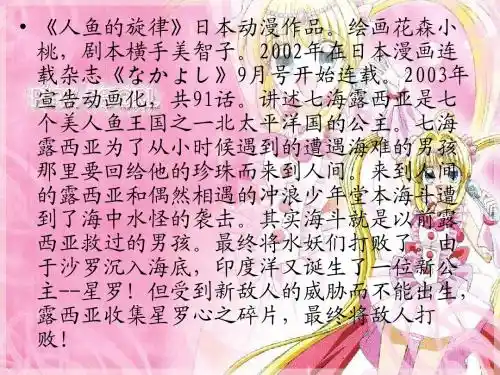 • 《人鱼的旋律》日本动漫作品。绘画花森小
桃，剧本横手美智子。2002年在日本漫画连
载杂志《なかよし》9月号开始连载。2003年
宣告动画化，共91话。讲述七海露西亚是七
个美人鱼王国之一北太平洋国的公主。七海
露西亚为了从小时候遇到的遭遇海难的男孩
那里要回给他的珍珠而来到人间。来到人间
的露西亚和偶然相遇的冲浪少年堂本海斗遭
到了海中水怪的袭击。其实海斗就是以前露
西亚救过的男孩。最终将水妖们打败了。由
于沙罗沉入海底，印度洋又诞生了一位新公
主--星罗！但受到新敌人的威胁而不能出生，
露西亚收集星罗心之碎片，最终将敌人打
败！